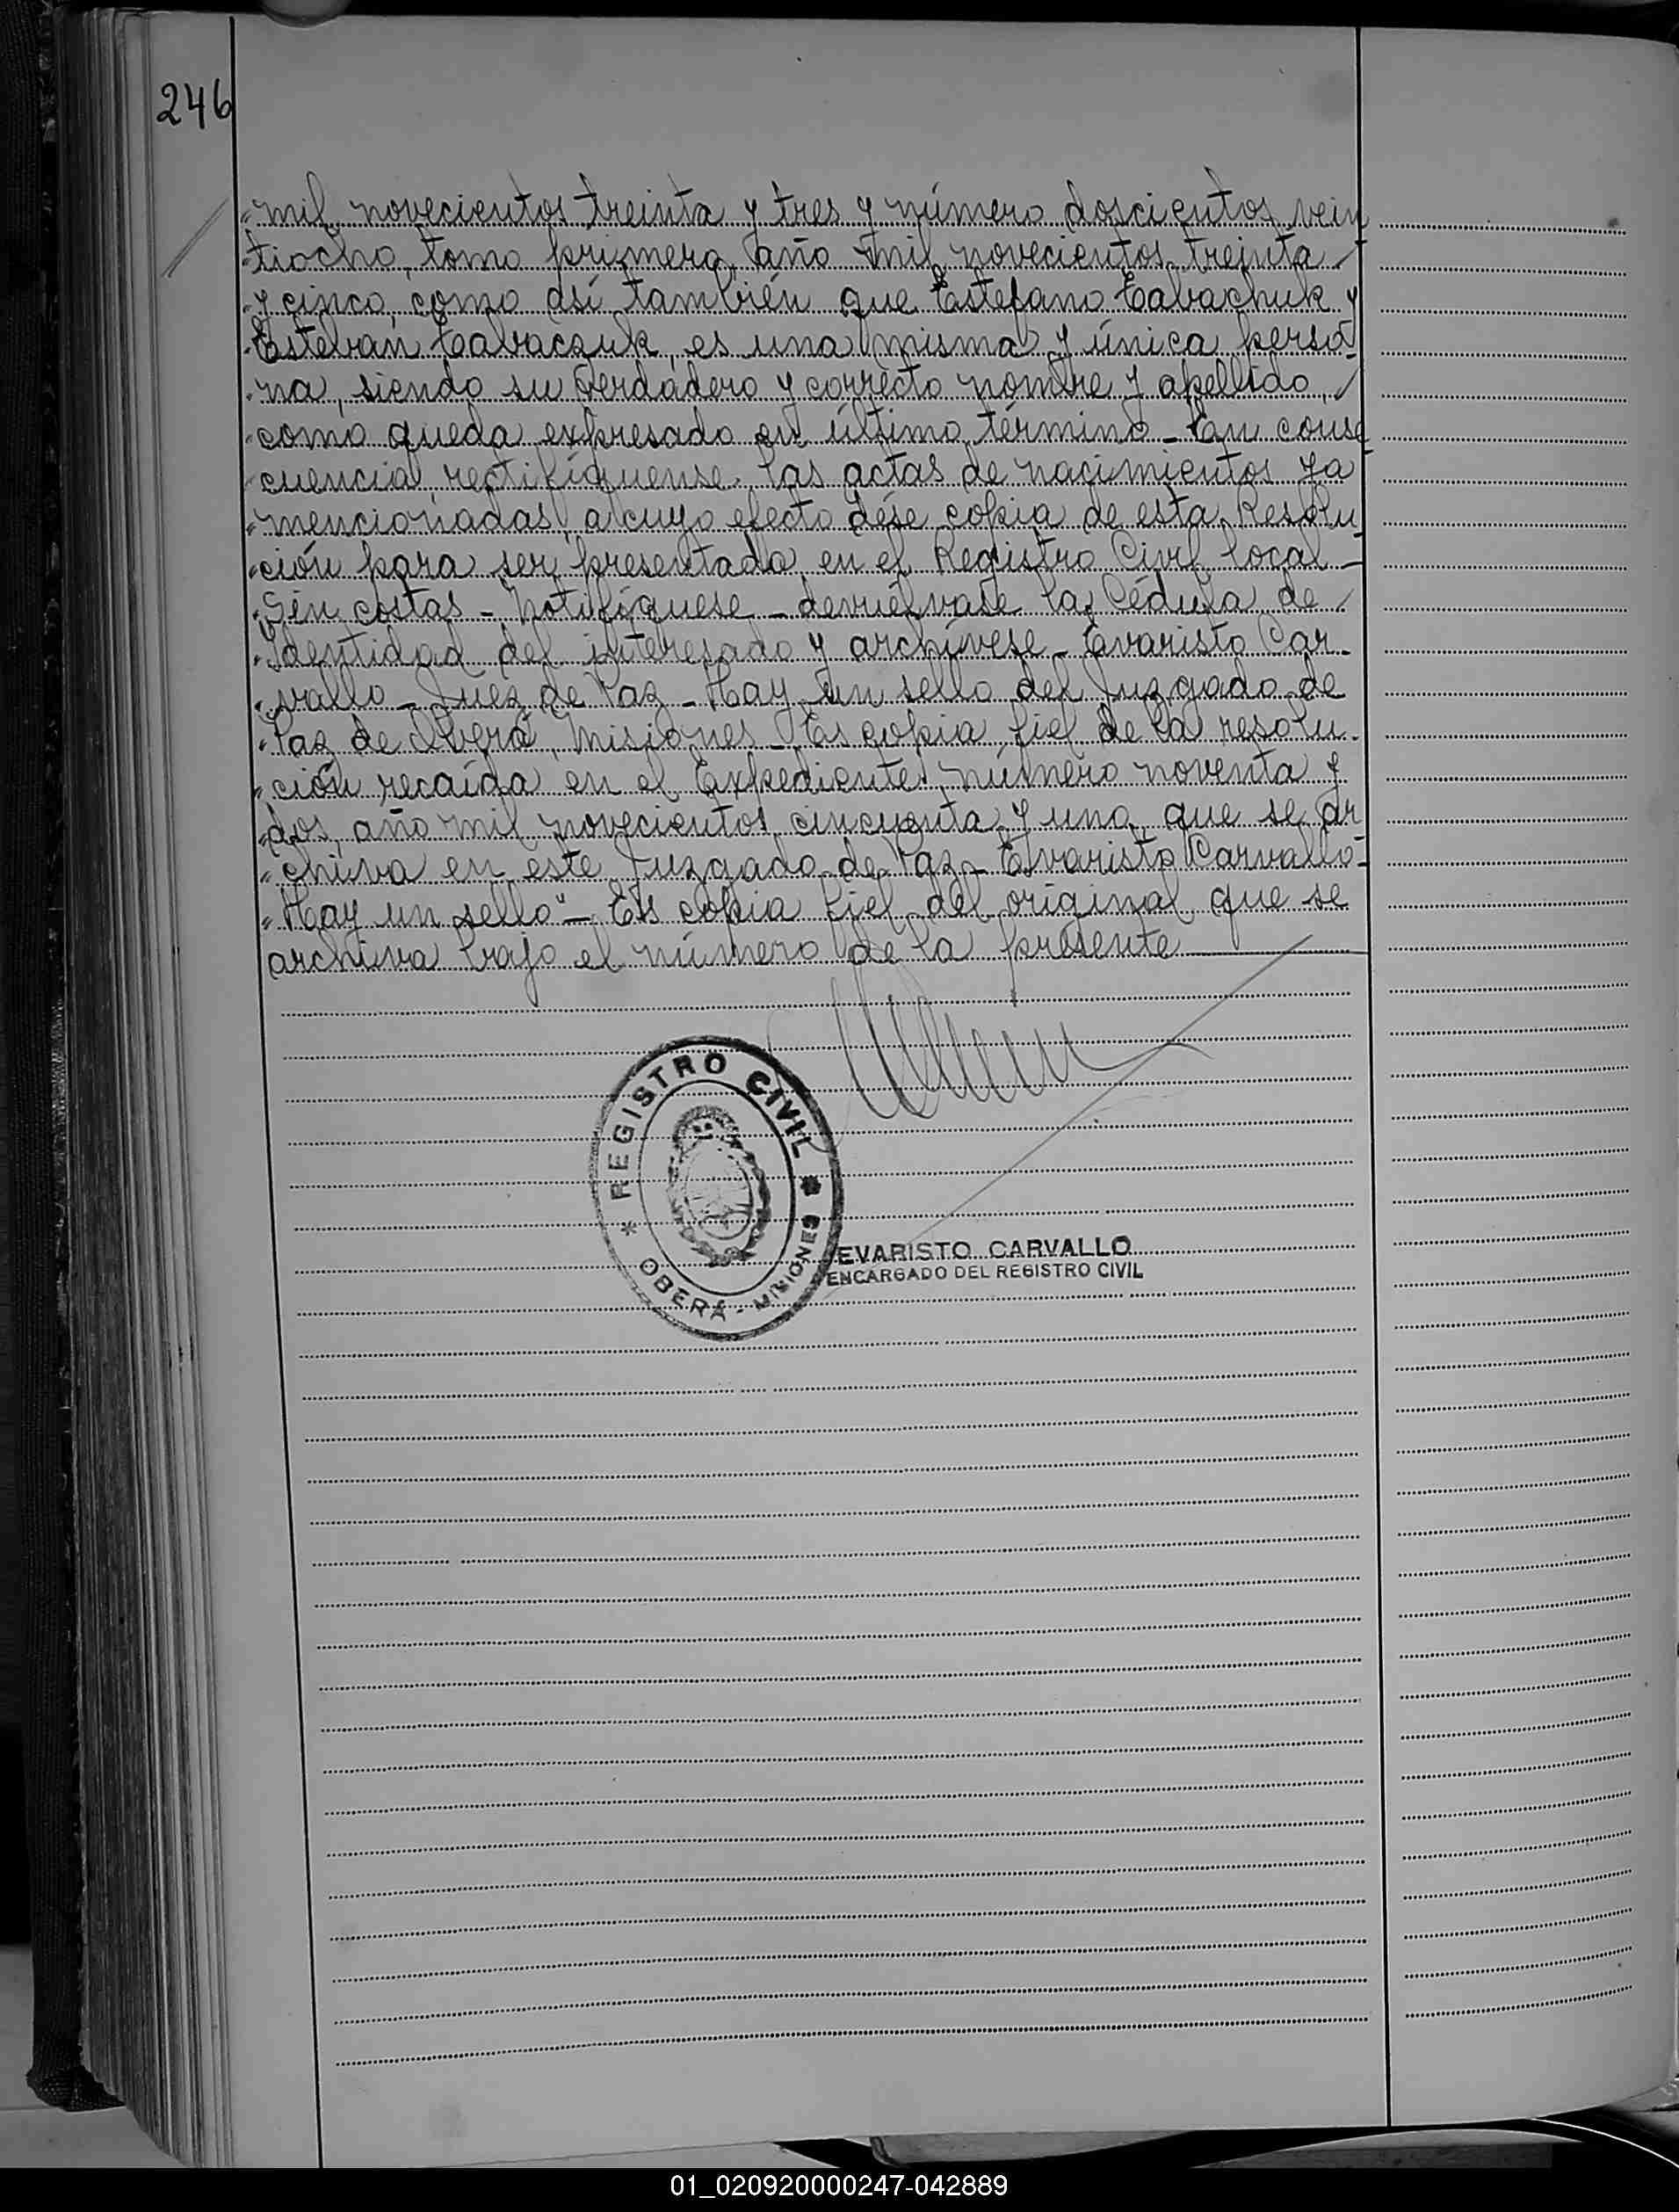 246
"mil novecientos treinta y tres y número doscientos vein
"tiocho, tomo primero, año mil novecientos treinta
"y cinco, como así también que Estefano Tabachuk y
"Esteban Tabaczuk, es una misma y única perso-
"na, siendo su verdadero y correcto nombre y apellido,
"como queda expresado en último término - En conse
"cuencia, rectifíquense las actas de nacimientos ya
"mencionadas, a cuyo efecto dése copia de esta Resolu-
"ción para ser presentada en el Registro Civil local -
"Sin costas - Notifíquese - devuélvase la Cédula de
"Identidad del interesado y archívese - Evaristo Car-
"vallo - Juez de Paz - Hay un sello del Juzgado de
"Paz de Oberá, Misiones - Es copia fiel de la resolu-
"ción recaída en el Expediente número noventa y
"dos, año mil novecientos cincuenta y uno, que se ar-
"chiva en este Juzgado de Paz - Evaristo Carvallo -
"Hay un sello" - Es copia fiel del original que se
archiva bajo el número de la presente
REGISTRO CIVIL
* OBERÁ - MISIONES *
EVARISTO CARVALLO
ENCARGADO DEL REGISTRO CIVIL
01_020920000247-042889